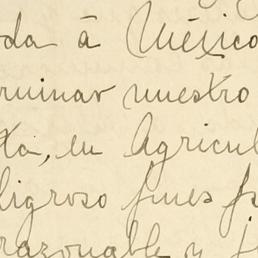 oda á México
rminar nuestro
ta, en Agricul
ligroso fines f
razonable y j